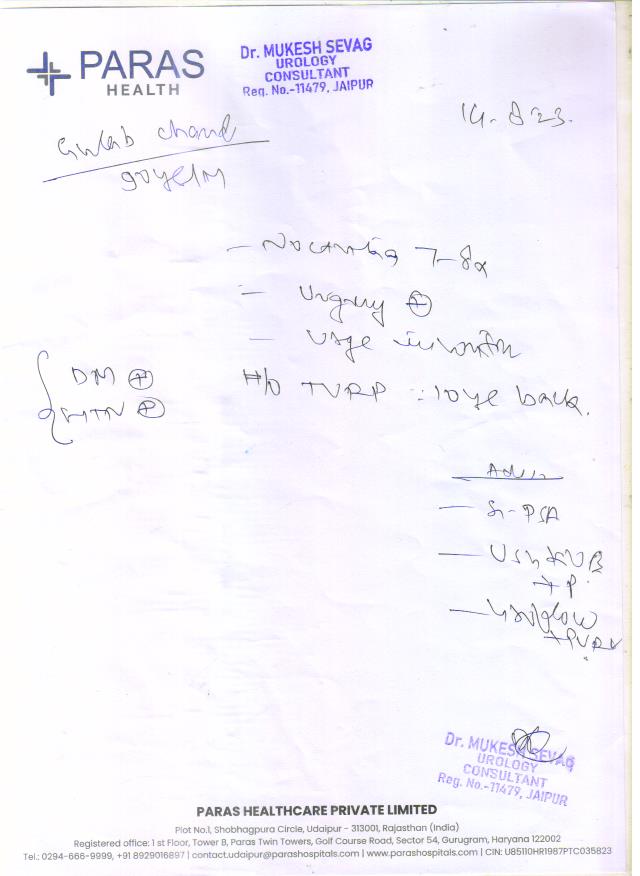 PARAS
HEALTH
Dr. MUKESH SEVAG
UROLOGY
CONSULTANT
Reg. No.-11479, JAIPUR
14.8.23.
Gulab chand
goyal M
- Nocturia 7-8x
- Urgency ⊕
- Urge
DM ⊕
HTN ⊕
H/O TURP : 10 ye back.
Adv
- Sr-PSA
- USG KUB
+ P.
- Uroflow
+ PVRU
Dr. MUKESH SEVAG
UROLOGY
CONSULTANT
Reg. No.-11479, JAIPUR
PARAS HEALTHCARE PRIVATE LIMITED
Plot No.1, Shobhagpura Circle, Udaipur - 313001, Rajasthan (India)
Registered office: 1 st Floor, Tower B, Paras Twin Towers, Golf Course Road, Sector 54, Gurugram, Haryana 122002
Tel.: 0294-666-9999, +91 8929016897 | contact.udaipur@parashospitals.com | www.parashospitals.com | CIN: U85110HR1987PTC035823